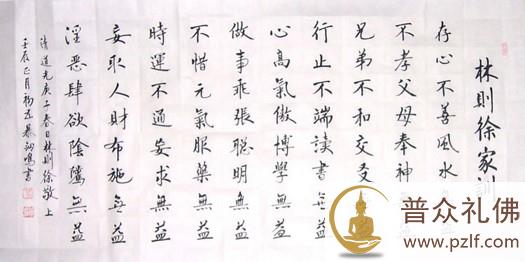 林則徐家訓
存心不善風水
不孝父母奉神
兄弟不和交友
行止不端讀書無益
心高氣傲博學無益
做事乖張聰明無益
不惜元氣服藥無益
時運不通妄求無益
妄取人財布施無益
淫惡肆欲陰騭無益
清道光庚子春日林則徐敬上
壬辰正月
鳴書
普众礼佛
www.pzlf.com